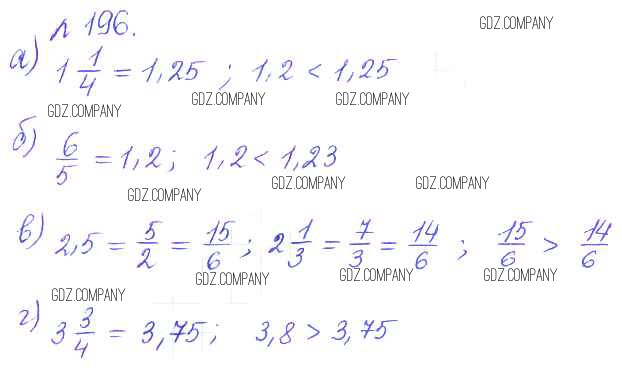 № 196. GDZ.COMPANY
а) 1 1/4 = 1,25 ; 1,2 < 1,25
GDZ.COMPANY GDZ.COMPANY
GDZ.COMPANY
б) 6/5 = 1,2 ; 1,2 < 1,23
GDZ.COMPANY GDZ.COMPANY GDZ.COMPANY
в) 2,5 = 5/2 = 15/6 ; 2 1/3 = 7/3 = 14/6 ; 15/6 > 14/6
GDZ.COMPANY GDZ.COMPANY GDZ.COMPANY
GDZ.COMPANY
г) 3 3/4 = 3,75 ; 3,8 > 3,75